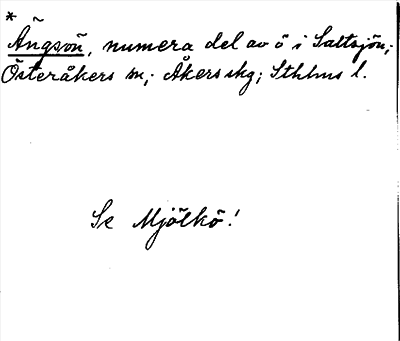 *
Ängsön, numera del av ö i Saltsjön;
Österåkers sn; Åkers skg; Sthlms l.
Se Mjölkö!